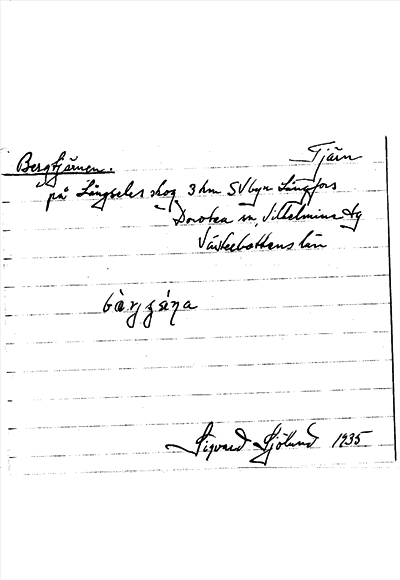 Tjärn
Bergtjärnen.
på Långseles skog 3 km SV byn Långfors
Dorotea sn, Vilhelmina tg
Västerbottens län
Sigvard Sjölund 1935